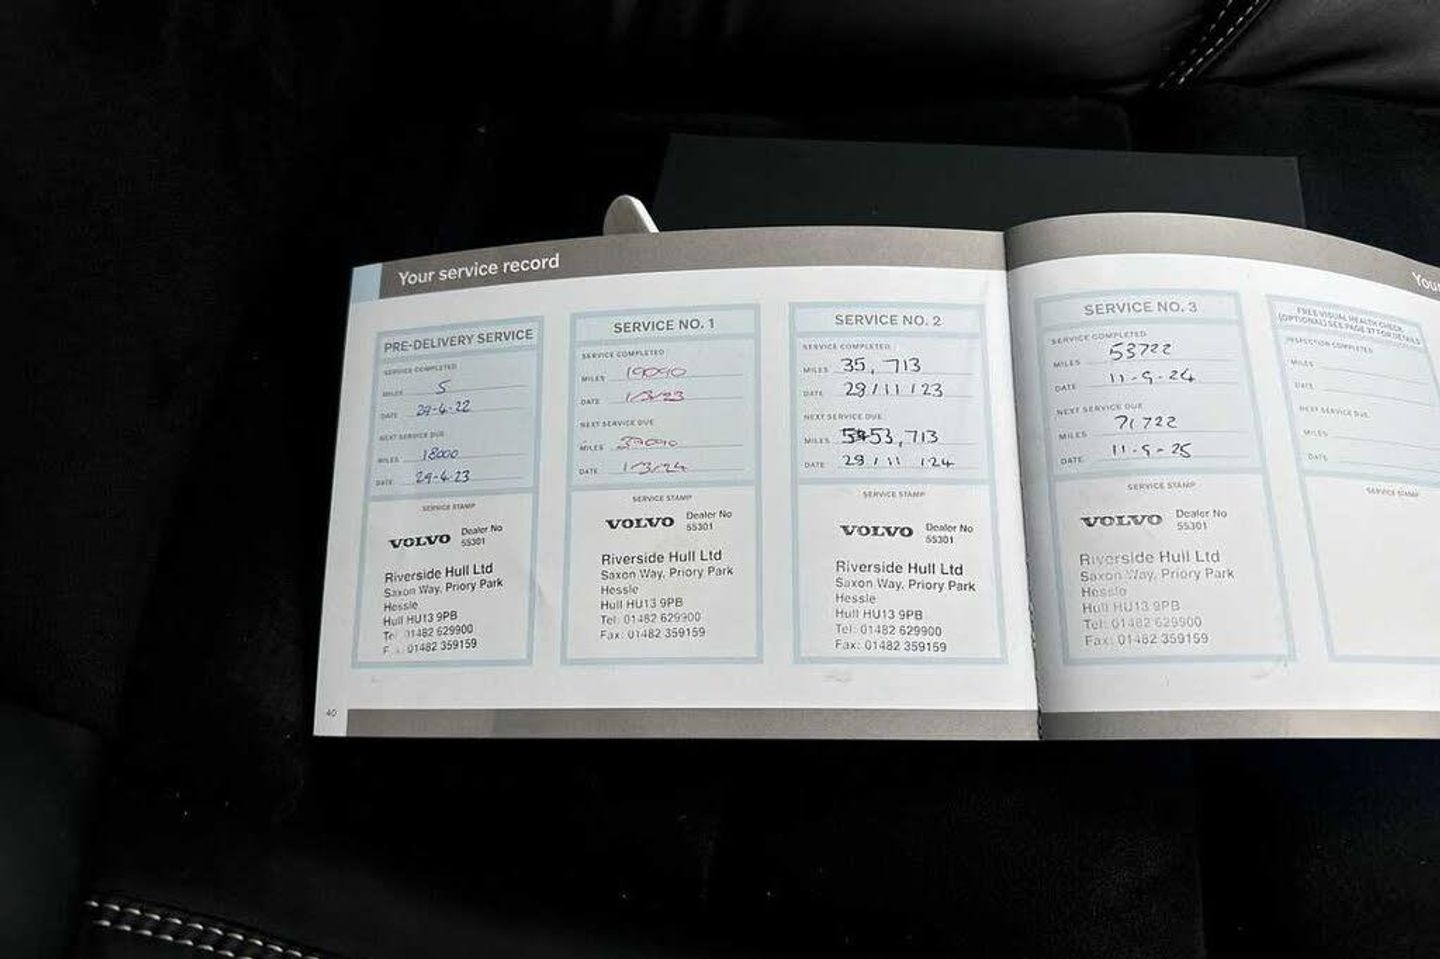 Your service record
PRE-DELIVERY SERVICE
SERVICE COMPLETED
MILES 5
DATE 29-4-22
NEXT SERVICE DUE
MILES 18000
DATE 29-4-23
SERVICE STAMP
VOLVO Dealer No
55301
Riverside Hull Ltd
Saxon Way, Priory Park
Hessle
Hull HU13 9PB
Tel 01482 629900
01482 359159
40
SERVICE NO. 1
SERVICE COMPLETED
MILES 19090
DATE 1/3/23
NEXT SERVICE DUE
MILES 37090
DATE 1/3/24
SERVICE STAMP
VOLVO Dealer No
55301
Riverside Hull Ltd
Saxon Way, Priory Park
Hessle
Hull HU13 9PB
Tel: 01482 629900
Fax: 01482 359159
SERVICE NO. 2
SERVICE COMPLETED
MILES 35,713
DATE 29/11/23
NEXT SERVICE DUE
MILES 53,713
DATE 29/11/24
SERVICE STAMP
VOLVO Dealer No
55301
Riverside Hull Ltd
Saxon Way, Priory Park
Hessle
Hull HU13 9PB
Tel: 01482 629900
Fax: 01482 359159
You
SERVICE NO. 3
SERVICE COMPLETED
MILES 53722
DATE 11-9-24
NEXT SERVICE DUE
MILES 71722
DATE 11-9-25
SERVICE STAMP
VOLVO Dealer No
55301
Riverside Hull Ltd
Saxon Way, Priory Park
Hessle
Hull HU13 9PB
Tel: 01482 629900
Fax: 01482 359159
FREE VISUAL HEALTH CHECK
(OPTIONAL) SEE PAGE 37 FOR DETAILS
INSPECTION COMPLETED
MILES
DATE
NEXT SERVICE DUE
MILES
DATE
SERVICE STAMP